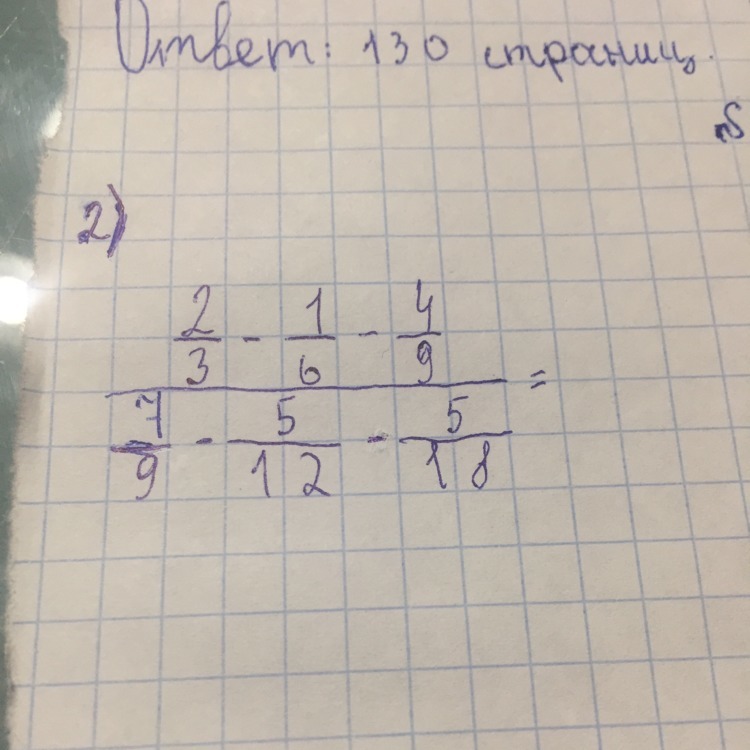 Ответ: 130 страниц.
2)
2/3 - 1/6 - 4/9
=
7/9 - 5/12 - 5/18